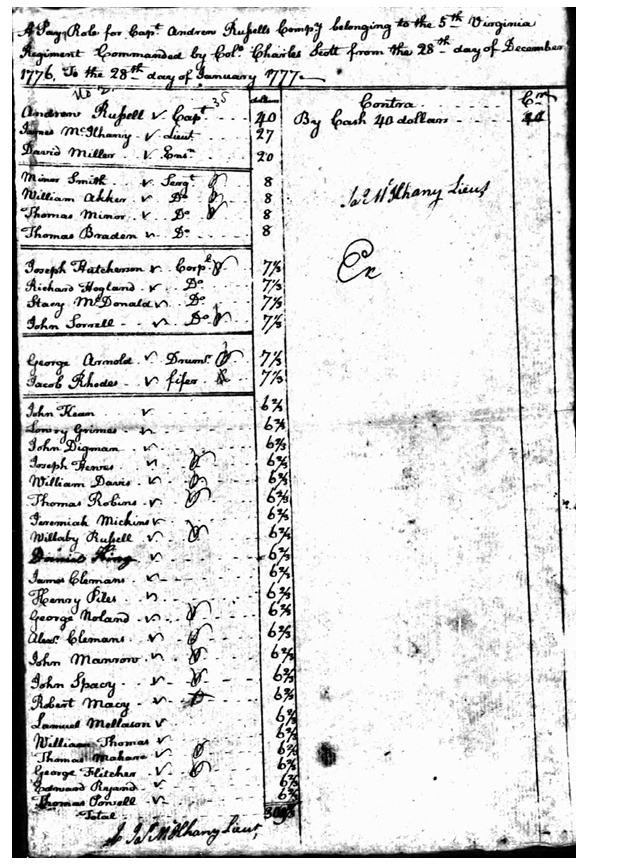 A Pay Role for Capt. Andrew Rußells Compy belonging to the 5th Virginia
Regiment Commanded by Colo. Charles Scott from the 28th day of December
1776, To the 28th day of January 1777
No 2.
dollars
Contra Cr
Andrew Rußell Capt 40 By Cash 40 dollars
James McIlhany Lieut 27
David Miller Ens 20
Minor Smith Sergt 8
William Do 8
Thomas Minor Do 8
Thomas Braden Do 8
Jas McIlhany Lieut
Joseph Hutcherson Corpl 7⅓
Richard Hogland Do 7⅓
Stacy McDonald Do 7⅓
John Sorrell Do 7⅓
George Arnold Drumr 7⅓
Jacob Rhodes fifer 7⅓
John Kean 6⅔
Lowry Grimes 6⅔
John Digman 6⅔
Joseph Hewes 6⅔
William Davis 6⅔
Thomas Robins 6⅔
Jeremiah Mickins 6⅔
Willaby Rußell 6⅔
Daniel King 6⅔
James Clemans 6⅔
Henry Piles 6⅔
George Noland 6⅔
Alexr. Clemans 6⅔
John Manrow 6⅔
John Spacy 6⅔
Robert Macy 6⅔
Samuel Mellason 6⅔
William Thomas 6⅔
Thomas 6⅔
George Flitcher 6⅔
Edward 6⅔
Thomas 6⅔
Total
Jas McIlhany Lieut